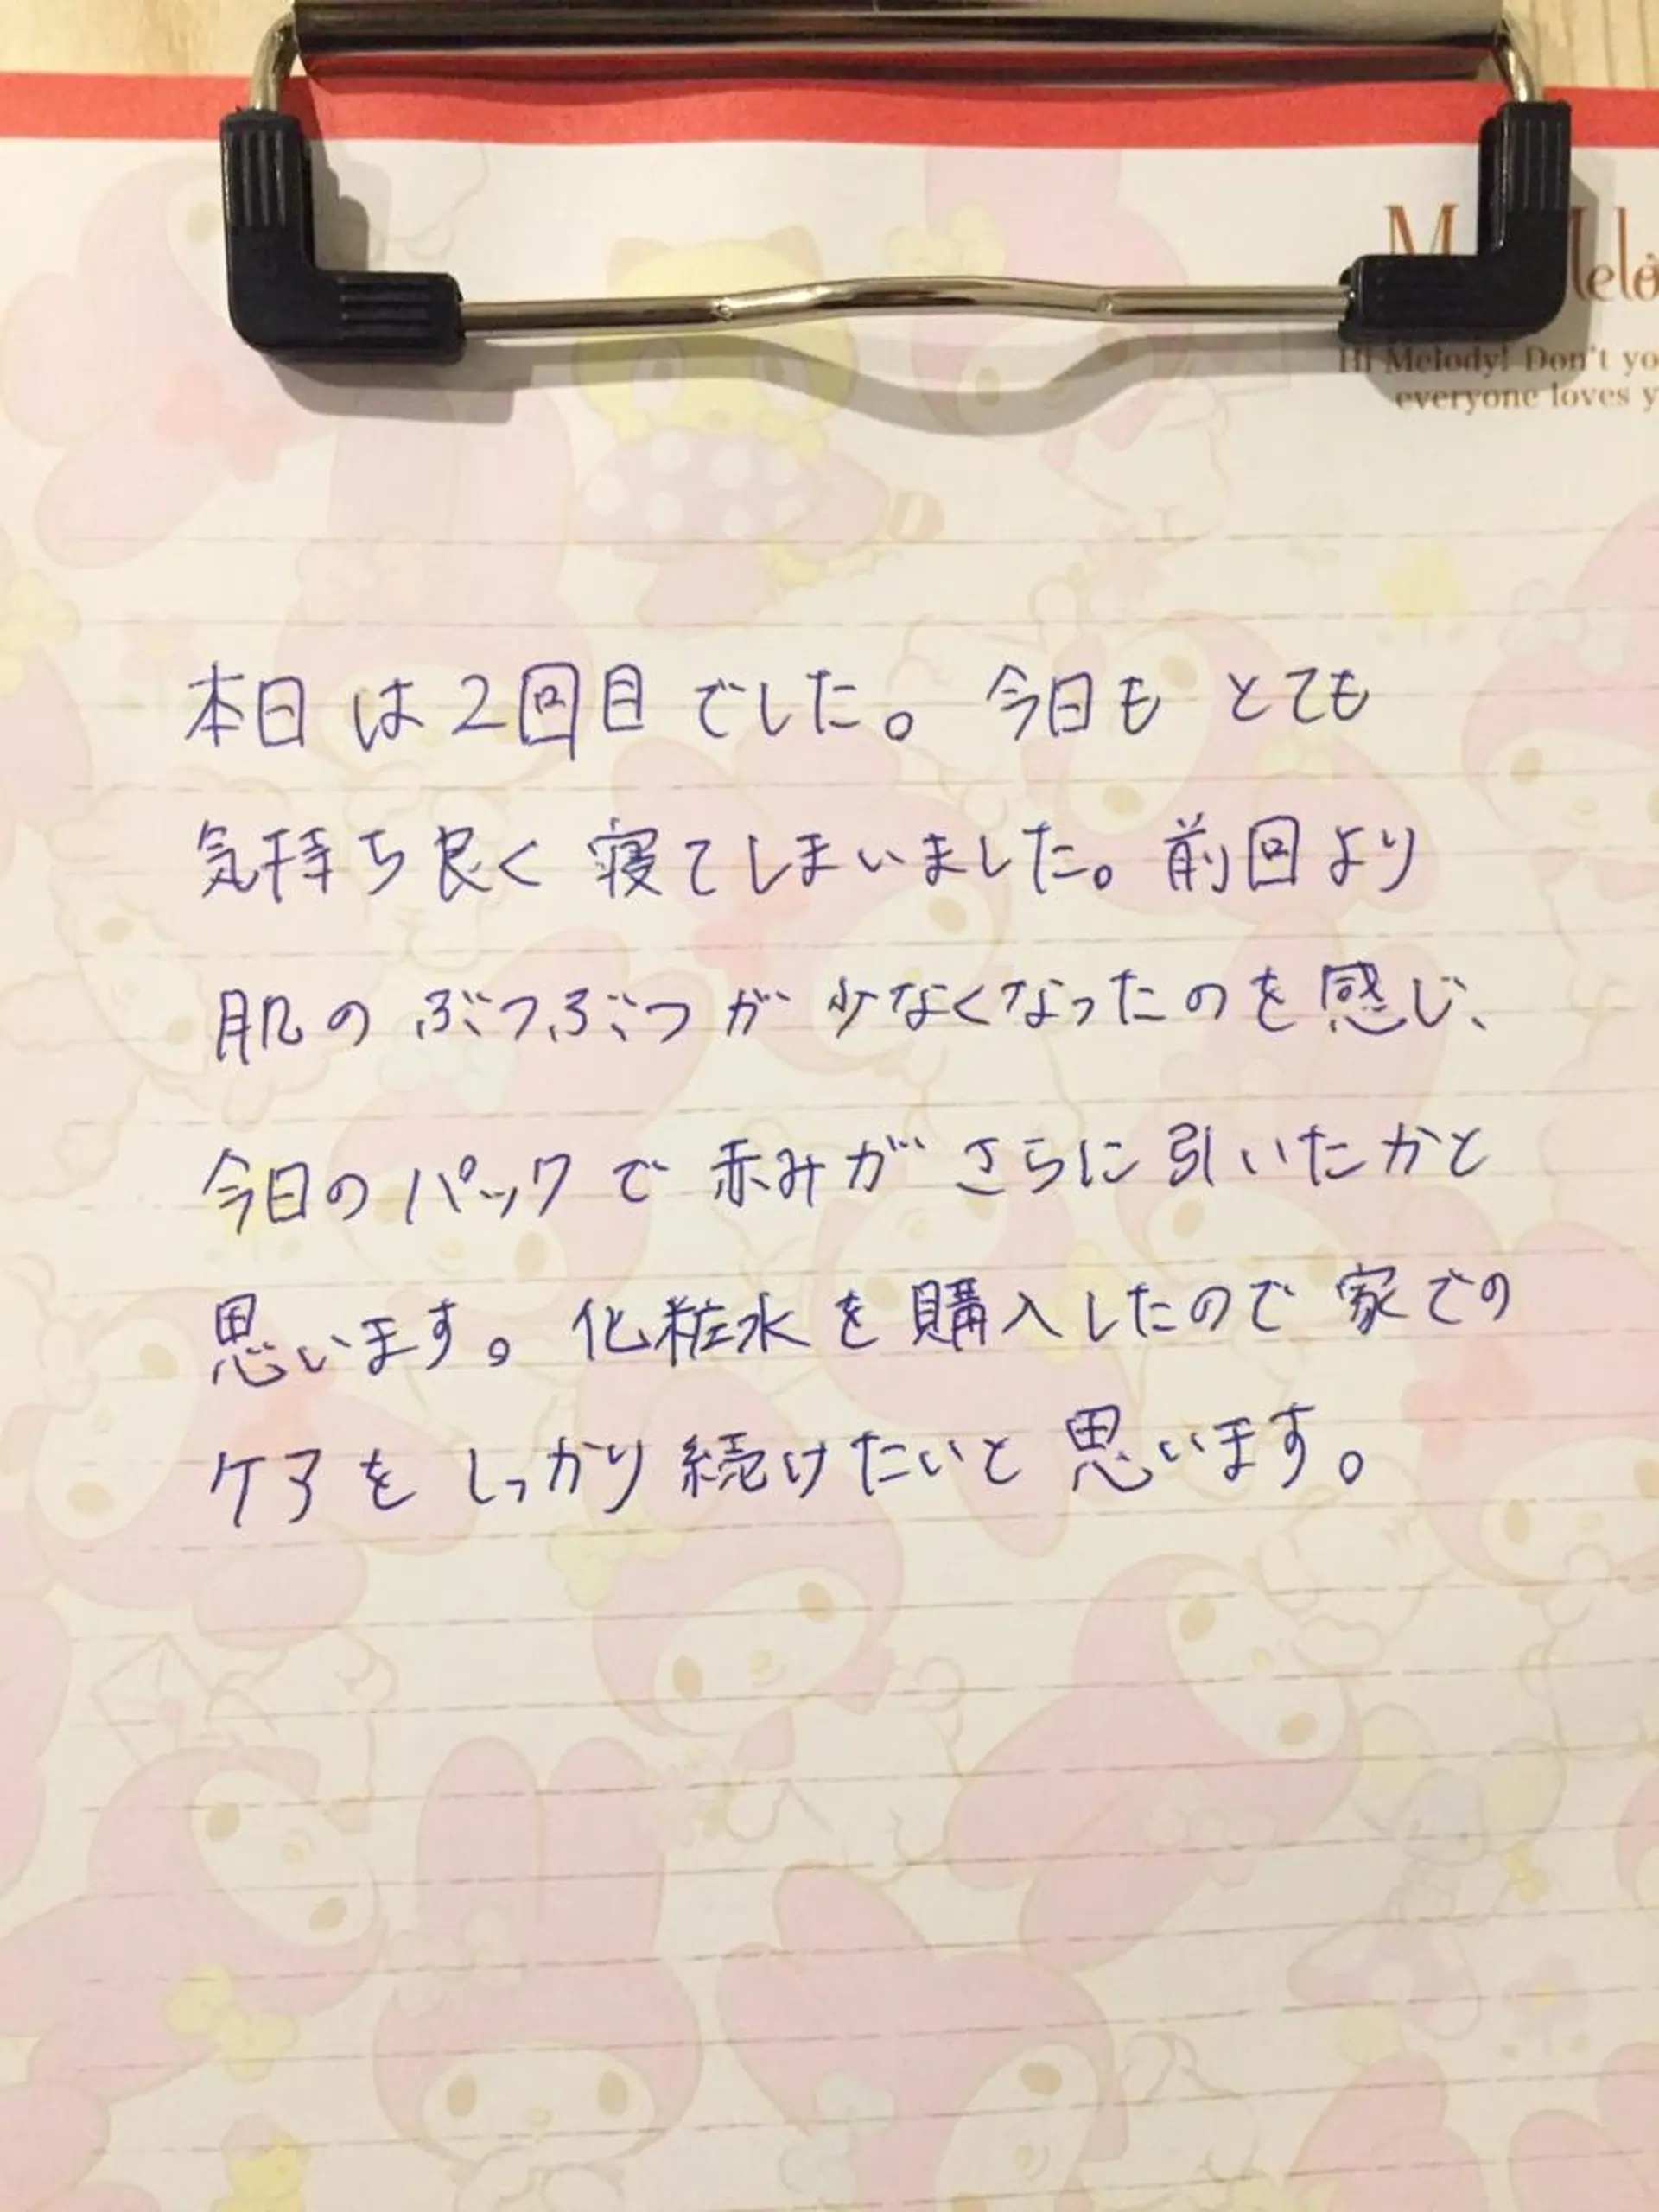 Melo
Hi Melody! Don't yo
everyone loves y
本日は2回目でした。今日もとても
気持ち良く寝てしまいました。前回より
肌のぶつぶつが少なくなったのを感じ、
今日のパックで赤みがさらに引いたかと
思います。化粧水を購入したので家での
ケアをしっかり続けたいと思います。